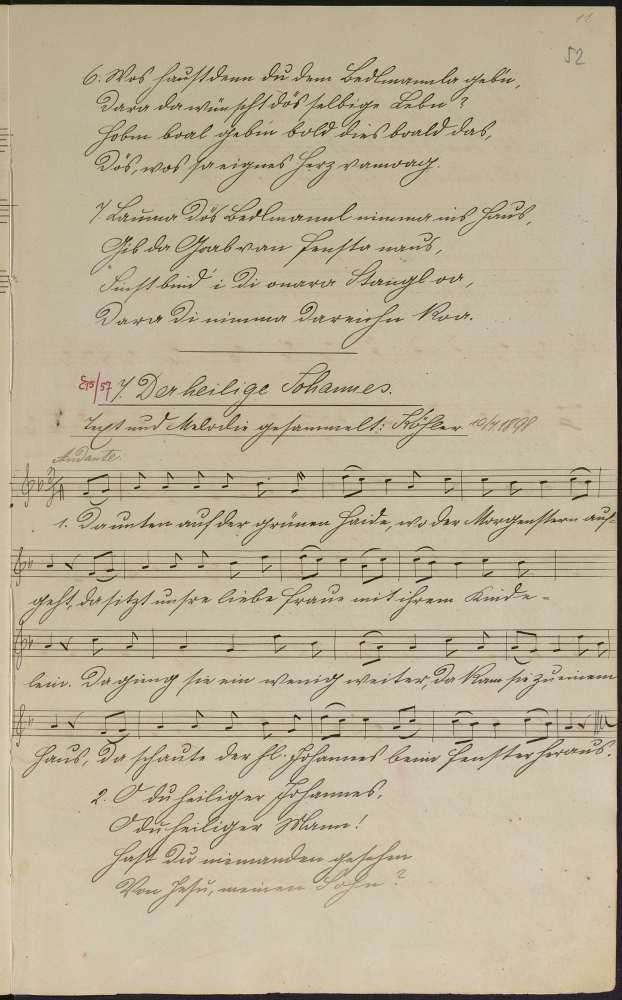 11
52
6. Wos haust denn du dem Bedlmannla gebn,
Dara da wünscht dös selbige Lebn?
Hobm boal gebin bold dies boald das,
Dös, wos sa eignes Herz vamoag.
7. Lauma dös Bedlmannl nimma ins Haus,
Gib da Goab van Fensta naus,
Sinst bind i di onara Stangl oa,
Dara di nimma dareichn koa.
7. Der heilige Johannes.
Text und Melodie gesammelt: Köhler
Andante.
1. Da unten auf der grünen Haide, wo der Morgenstern auf-
geht, da sitzt unsre liebe Fraue mit ihrem Kinde-
lein. Da ging sie ein wenig weiter, da kam sie zu einem
Haus, da schaute der hl. Johannes beim Fenster heraus.
2. O du heiliger Johannes,
O du heiliger Mann!
Hast du niemanden gesehn
Von Jesu, meinen Sohn?